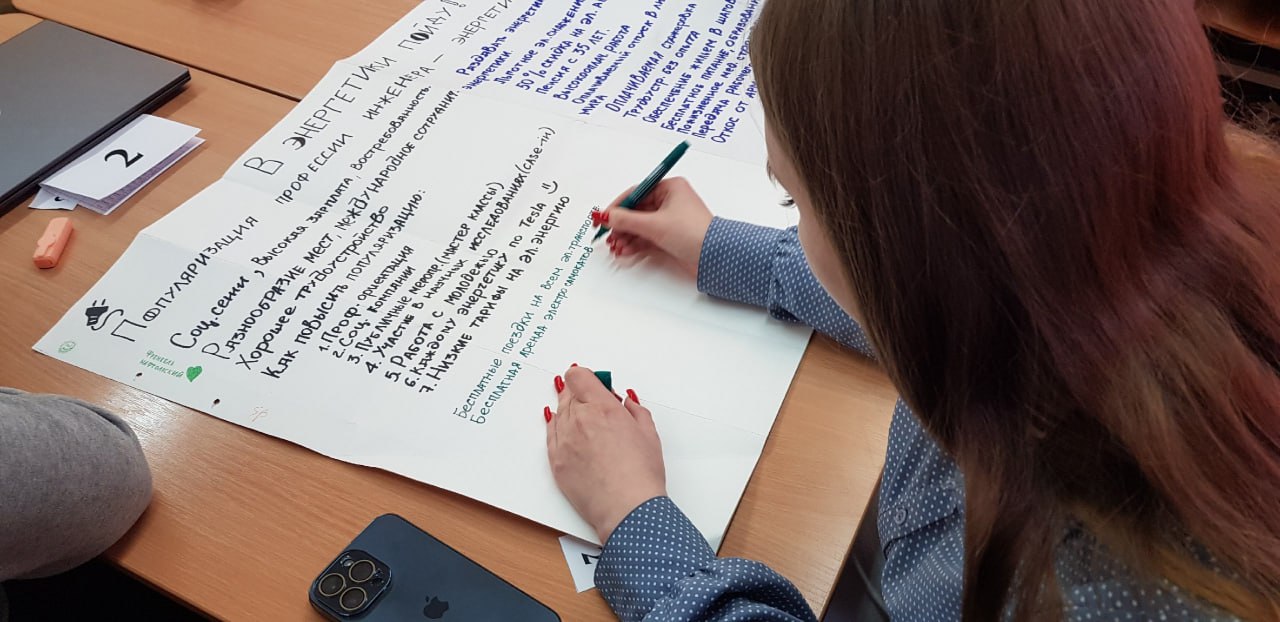 В ЭНЕРГЕТИКИ ПОЙДУ!
ПОПУЛЯРИЗАЦИЯ ПРОФЕССИИ ИНЖЕНЕРА – ЭНЕРГЕТИ
Соц.сети, Высокая зарплата, востребованность.
Разнообразие мест, международное сотрудни.
Хорошее трудоустройство
Как повысить популяризацию:
1. Проф. ориентация
2. Соц. компании
3. Публичные мероп. (мастер классы)
4. Участие в научных исследованиях (case-in)
5. Работа с молодежью
6. Каждому энергетику по Tesla
7. Низкие тарифы на эл. энергию
Бесплатные поездки на всем эл.транспорте
Бесплатная аренда электро самокатов
Раздавать энергетик
энергетики.
Льготное эл.снабжени
50% скидка на эл. а
Пенсия с 35 лет.
Высокооплач. работа
Оплачиваемый отпуск в л
мира
Оплачиваемая стажировка
Трудоустр. без опыта
Обеспечение жильем в шагов
Бесплатное питание, образовани
Пожизненное мед. стра
Передача рабочег
Откос от ар
2
2